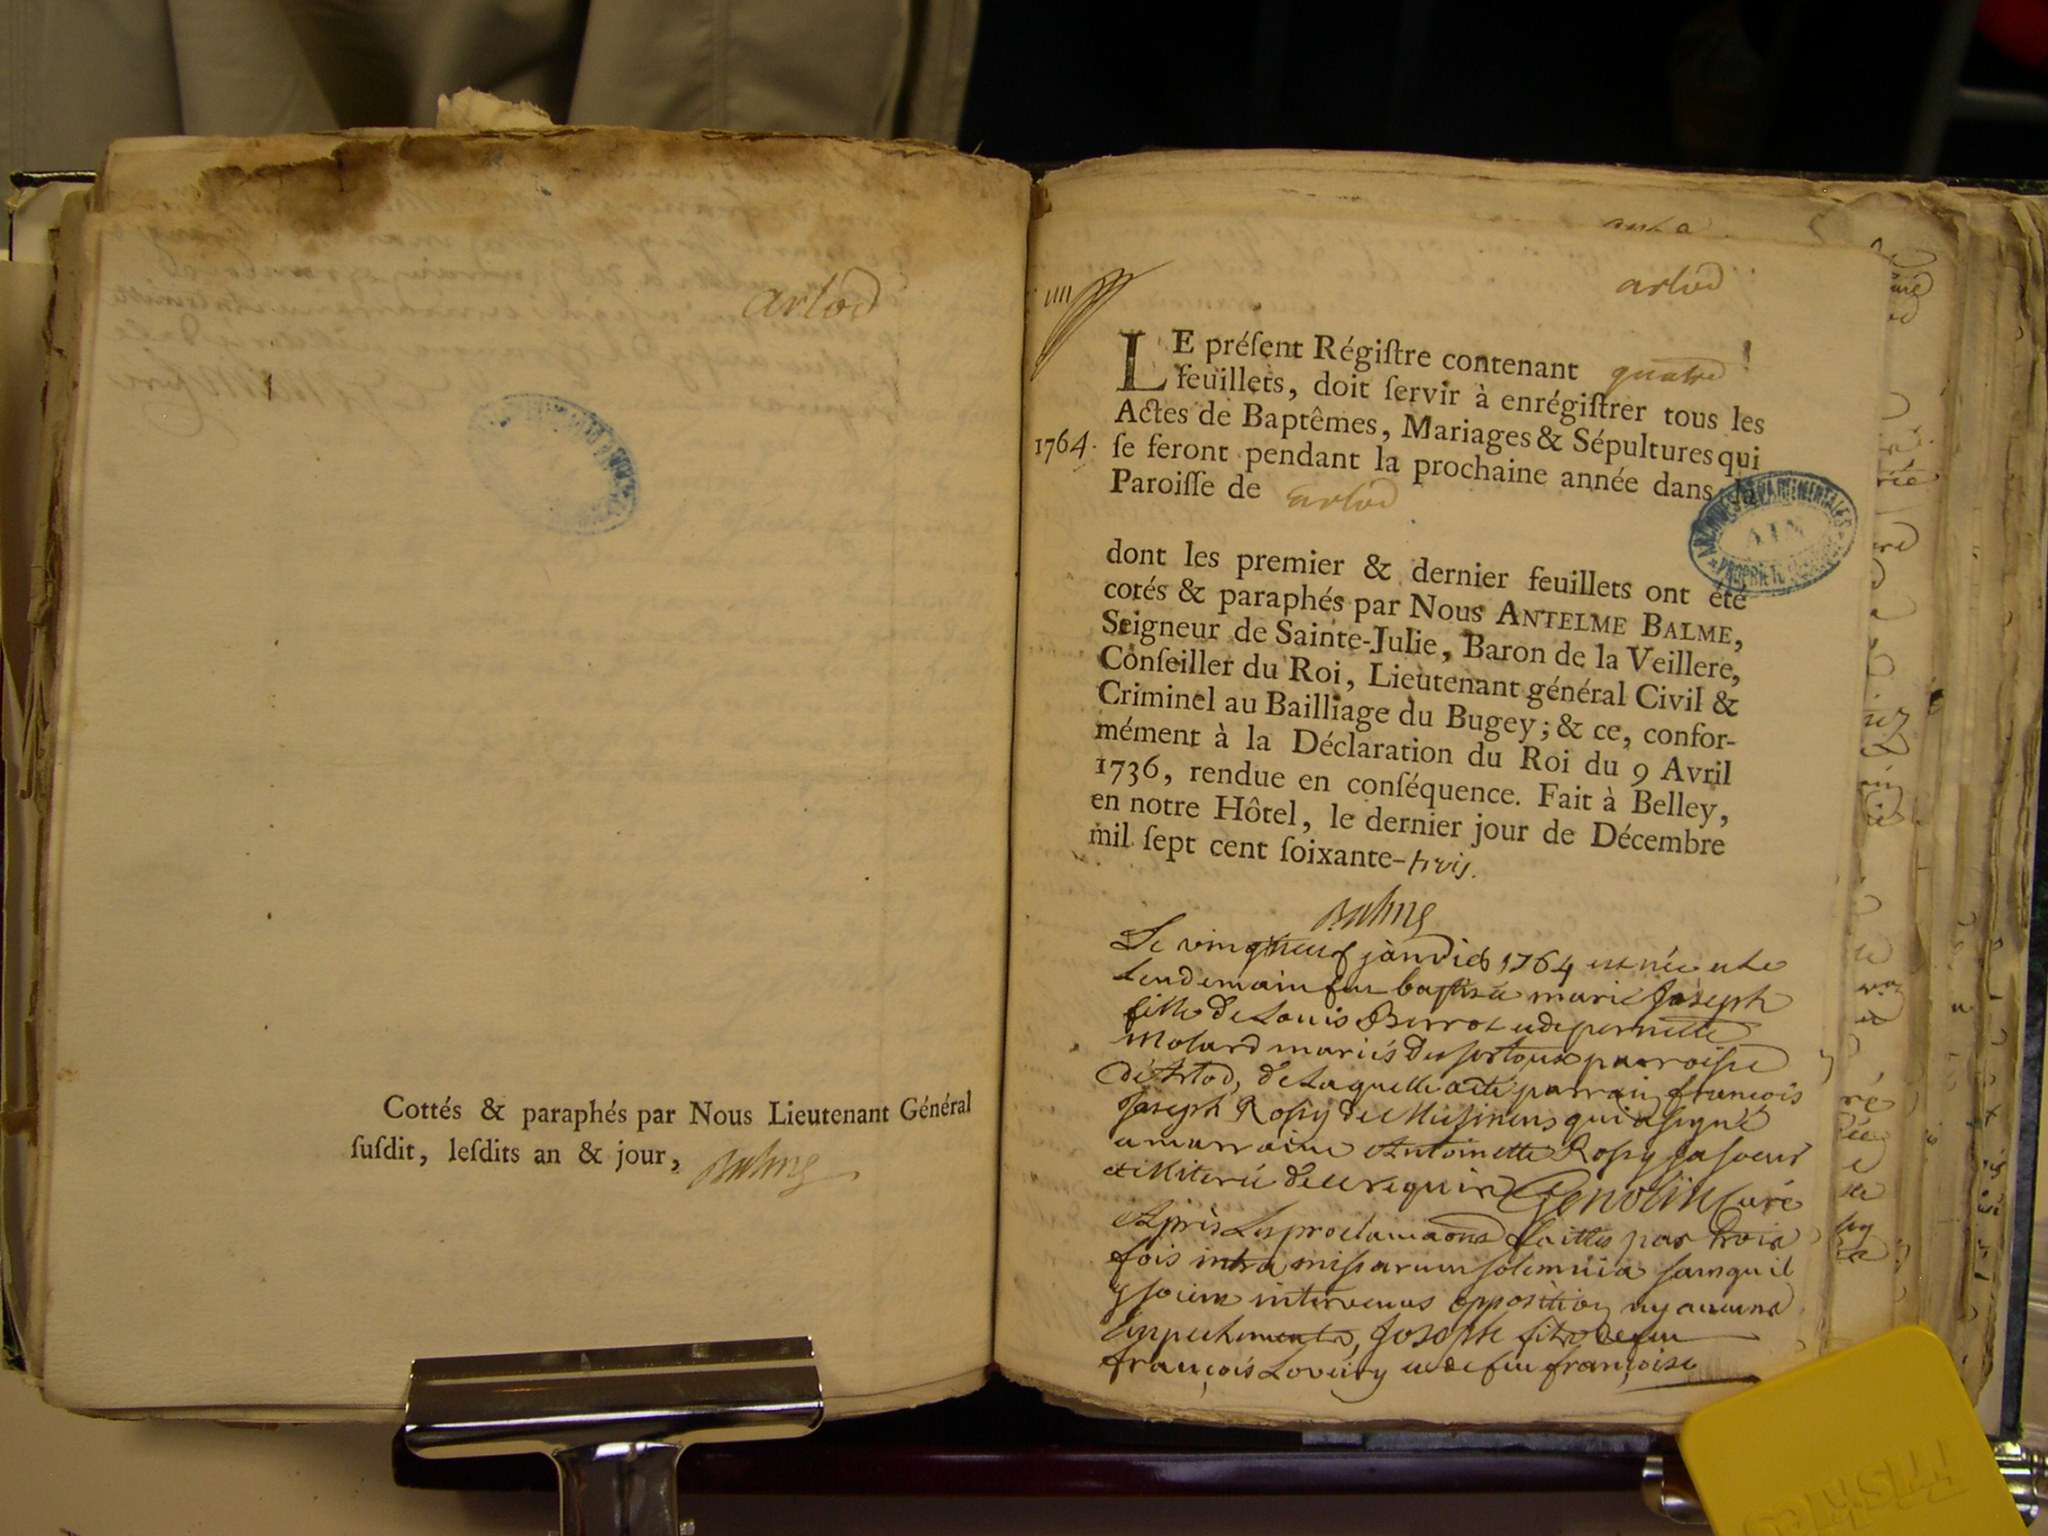 arlod
Cottés & paraphés par Nous Lieutenant Général
ſuſdit, leſdits an & jour, Balme
arlod
LE préſent Régiſtre contenant quatre
feuillets, doit ſervir à enrégiſtrer tous les
Actes de Baptêmes, Mariages & Sépultures qui
1764. ſe feront pendant la prochaine année dans la
Paroiſſe de arlod
dont les premier & dernier feuillets ont été
cotés & paraphés par Nous ANTELME BALME,
Seigneur de Sainte-Julie, Baron de la Veillere,
Conſeiller du Roi, Lieutenant général Civil &
Criminel au Bailliage du Bugey; & ce, confor-
mément à la Déclaration du Roi du 9 Avril
1736, rendue en conſéquence. Fait à Belley,
en notre Hôtel, le dernier jour de Décembre
mil ſept cent ſoixante-trois.
Balme
Le vingtneuf janvier 1764 est née et le
lendemain fut baptisée marie Joseph
fille de Louis Berrot et de pernette
Molard mariés parroisse
d'Arlod, de laquelle a été parrain françois
Joseph Rossy de Musinens qui a signé
et marraine Antoinette Rossy sa soeur
et illiterée de ce requise Genolin Curé
Après les proclamaons faittes par trois
fois intra missarum solemnia sans qu'il
y soient intervenus opposition ny aucuns
empechements, Joseph fils de feu
françois et de feu françoise